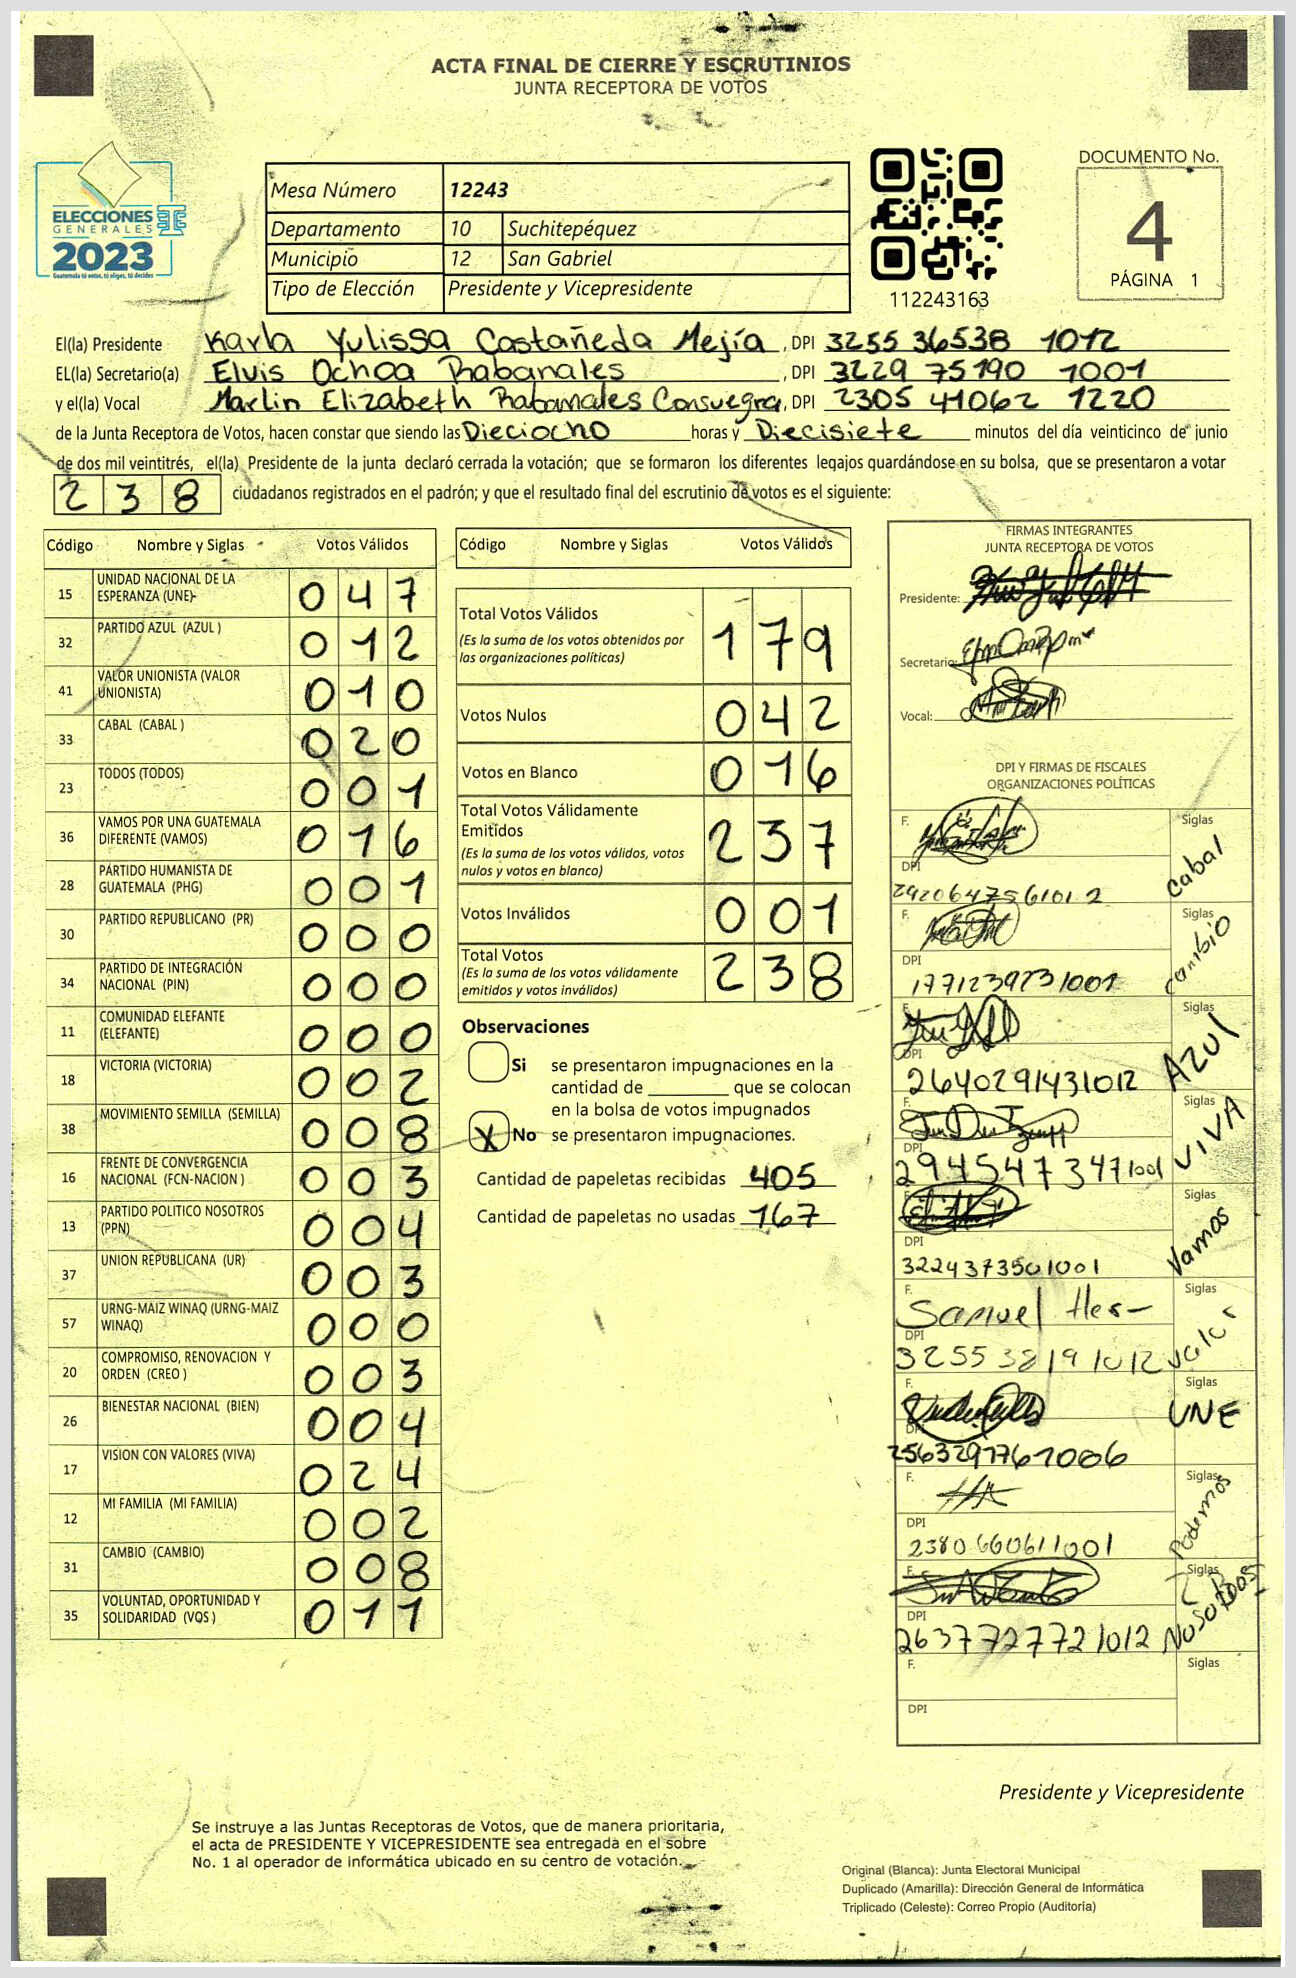 ACTA FINAL DE CIERRE Y ESCRUTINIOS
JUNTA RECEPTORA DE VOTOS
ELECCIONES
GENERALES
2023
Guatemala tú votas, tú eliges, tú decides
Mesa Número 12243
Departamento 10 Suchitepéquez
Municipio 12 San Gabriel
Tipo de Elección Presidente y Vicepresidente
112243163
DOCUMENTO No.
4
PÁGINA 1
El(la) Presidente Karla Yulissa Castañeda Mejía, DPI 3255 36538 1012
EL(la) Secretario(a) Elvis Ochoa Rabanales, DPI 3229 75190 1001
y el(la) Vocal Marlin Elizabeth Rabanales Consuegra, DPI 2305 41062 1220
de la Junta Receptora de Votos, hacen constar que siendo las Dieciocho horas y Diecisiete minutos del día veinticinco de junio
de dos mil veintitrés, el(la) Presidente de la junta declaró cerrada la votación; que se formaron los diferentes legajos guardándose en su bolsa, que se presentaron a votar
238 ciudadanos registrados en el padrón; y que el resultado final del escrutinio de votos es el siguiente:
Código Nombre y Siglas Votos Válidos
15 UNIDAD NACIONAL DE LA ESPERANZA (UNE) 047
32 PARTIDO AZUL (AZUL ) 012
41 VALOR UNIONISTA (VALOR UNIONISTA) 010
33 CABAL (CABAL ) 020
23 TODOS (TODOS) 001
36 VAMOS POR UNA GUATEMALA DIFERENTE (VAMOS) 016
28 PARTIDO HUMANISTA DE GUATEMALA (PHG) 001
30 PARTIDO REPUBLICANO (PR) 000
34 PARTIDO DE INTEGRACIÓN NACIONAL (PIN) 000
11 COMUNIDAD ELEFANTE (ELEFANTE) 000
18 VICTORIA (VICTORIA) 002
38 MOVIMIENTO SEMILLA (SEMILLA) 008
16 FRENTE DE CONVERGENCIA NACIONAL (FCN-NACION ) 003
13 PARTIDO POLITICO NOSOTROS (PPN) 004
37 UNION REPUBLICANA (UR) 003
57 URNG-MAIZ WINAQ (URNG-MAIZ WINAQ) 000
20 COMPROMISO, RENOVACION Y ORDEN (CREO ) 003
26 BIENESTAR NACIONAL (BIEN) 004
17 VISION CON VALORES (VIVA) 024
12 MI FAMILIA (MI FAMILIA) 002
31 CAMBIO (CAMBIO) 008
35 VOLUNTAD, OPORTUNIDAD Y SOLIDARIDAD (VOS ) 011
Código Nombre y Siglas Votos Válidos
Total Votos Válidos 179
(Es la suma de los votos obtenidos por
las organizaciones políticas)
Votos Nulos 042
Votos en Blanco 016
Total Votos Válidamente
Emitidos 237
(Es la suma de los votos válidos, votos
nulos y votos en blanco)
Votos Inválidos 001
Total Votos 238
(Es la suma de los votos válidamente
emitidos y votos inválidos)
Observaciones
Si se presentaron impugnaciones en la
cantidad de ________ que se colocan
en la bolsa de votos impugnados
X No se presentaron impugnaciones.
Cantidad de papeletas recibidas 405
Cantidad de papeletas no usadas 167
FIRMAS INTEGRANTES
JUNTA RECEPTORA DE VOTOS
Presidente:
Secretario:
Vocal:
DPI Y FIRMAS DE FISCALES
ORGANIZACIONES POLÍTICAS
F. Siglas Cabal
DPI 2920647561012
F. Siglas Cambio
DPI 1771239231001
F. Siglas AZUL
DPI 2640291431012
F. Siglas VIVA
DPI 2945473471001
F. Siglas Vamos
DPI 3224373501001
F. Samuel Siglas Valor
DPI 325538191012
F. Siglas UNE
DPI 2563297761006
F. Siglas Podemos
DPI 2380660611001
F. Siglas
DPI 2637727721012
F. Siglas
DPI
Presidente y Vicepresidente
Se instruye a las Juntas Receptoras de Votos, que de manera prioritaria,
el acta de PRESIDENTE Y VICEPRESIDENTE sea entregada en el sobre
No. 1 al operador de informática ubicado en su centro de votación.
Original (Blanca): Junta Electoral Municipal
Duplicado (Amarilla): Dirección General de Informática
Triplicado (Celeste): Correo Propio (Auditoría)